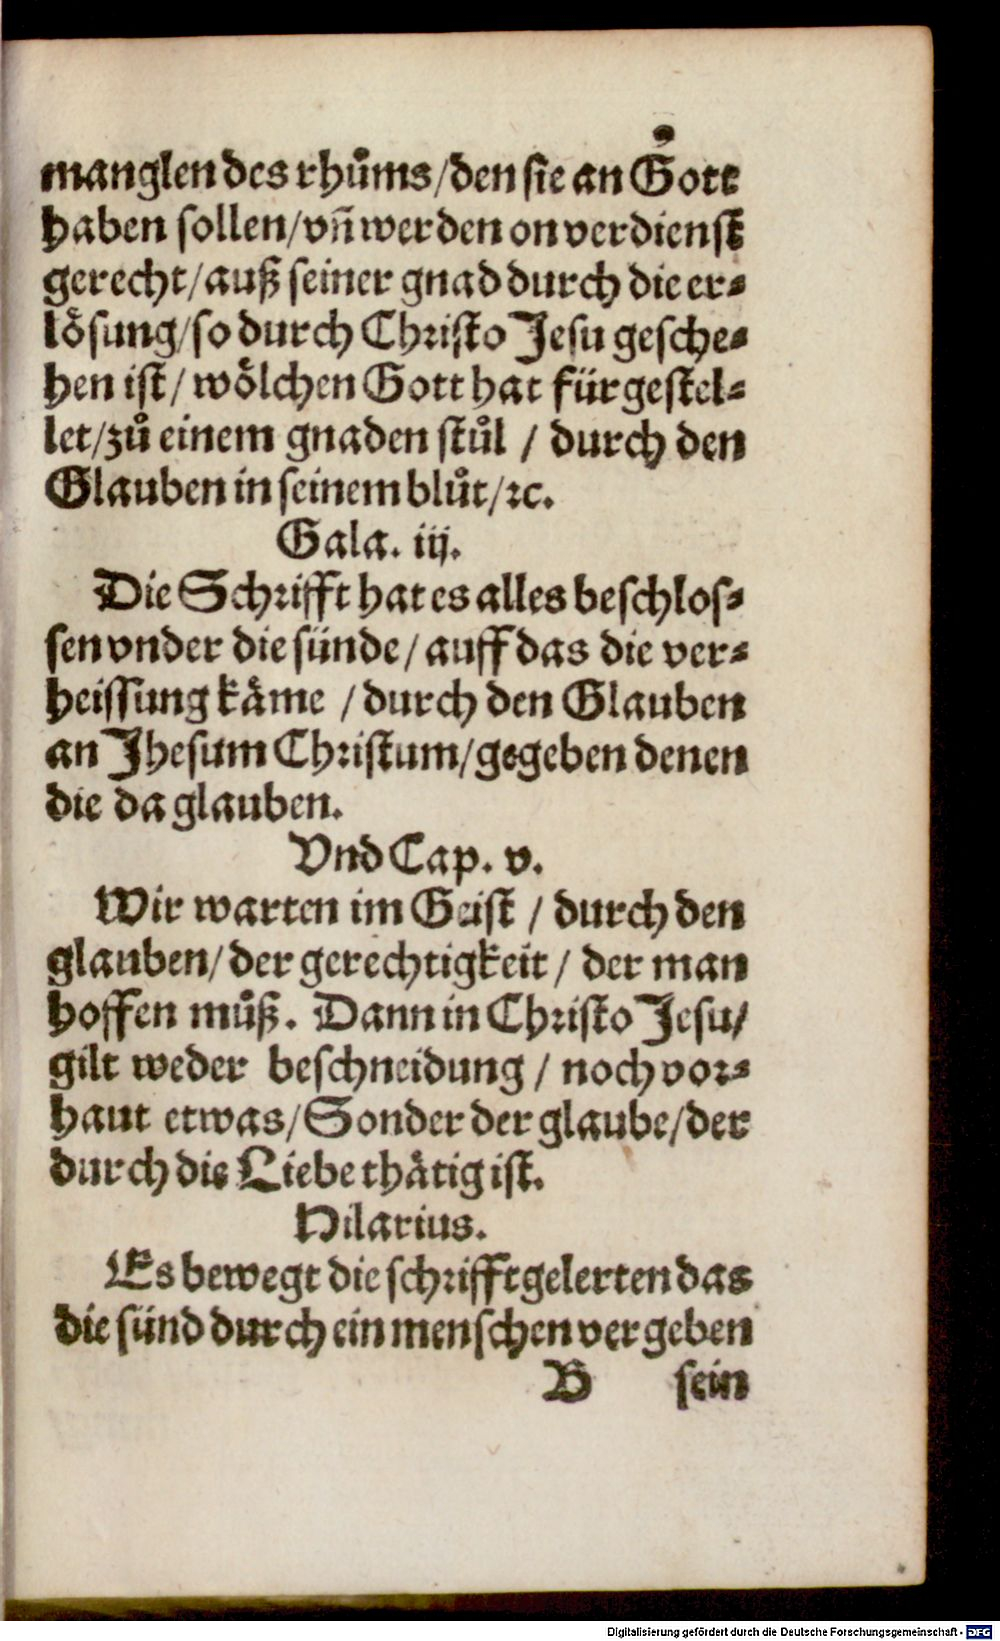 manglen des rhůms/den sie an Gott
haben sollen/vñ werden on verdienst
gerecht/auß seiner gnad durch die er⸗
lösung/so durch Christo Jesu gesche⸗
hen ist/wölchen Gott hat fürgestel⸗
let/zů einem gnaden stůl / durch den
Glauben in seinem blůt/ꝛc.
Gala. iij.
Die Schrifft hat es alles beschlos⸗
sen vnder die sünde/auff das die ver⸗
heissung käme /durch den Glauben
an Jhesum Christum/gegeben denen
die da glauben.
Vnd Cap. v.
Wir warten im Geist / durch den
glauben/der gerechtigkeit/ der man
hoffen můß. Dann in Christo Jesu/
gilt weder beschneidung / noch vor⸗
haut etwas/Sonder der glaube/der
durch die Liebe thätig ist.
Hilarius.
Es bewegt die schrifftgelerten das
die sünd durch ein menschen vergeben
B sein
Digitalisierung gefördert durch die Deutsche Forschungsgemeinschaft - DFG